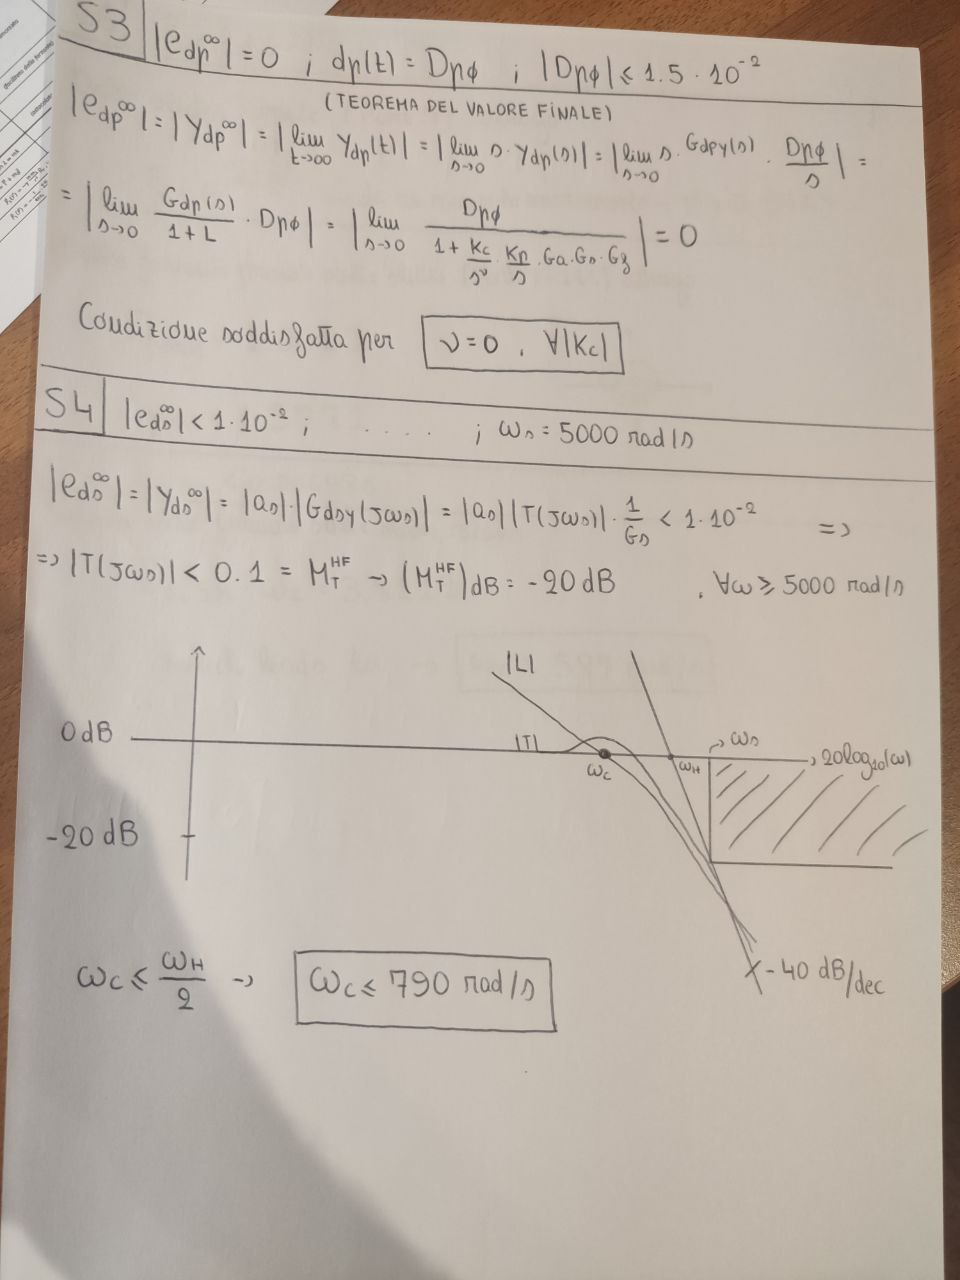 S3 |e_dp^∞| = 0 ; dp(t) = Dpϕ ; |Dpϕ| ≤ 1.5 · 10^-2
(TEOREMA DEL VALORE FINALE)
|e_dp^∞| = |Y_dp^∞| = |lim_{t→∞} Y_dp(t)| = |lim_{s→0} s · Y_dp(s)| = |lim_{s→0} s · Gdpy(s) · Dpϕ/s| =
= |lim_{s→0} Gdp(s)/(1+L) · Dpϕ| = |lim_{s→0} Dpϕ/(1 + Kc/s^ν · Kp/s · Ga · Gs · Gf)| = 0
Condizione soddisfatta per ν = 0 , ∀|Kc|
S4 |e_ds^∞| < 1·10^-2 ; . . . . ; ωs = 5000 rad/s
|e_ds^∞| = |Y_ds^∞| = |as|·|Gdsy(jωs)| = |as||T(jωs)| · 1/Gs < 1·10^-2 =>
=> |T(jωs)| < 0.1 = M_T^HF → (M_T^HF)dB = -20 dB , ∀ω ≥ 5000 rad/s
|L|
0 dB |T| ωc ωH → ωs → 20log10(ω)
-20 dB
-40 dB/dec
ωc ≤ ωH/2 → ωc ≤ 790 rad/s